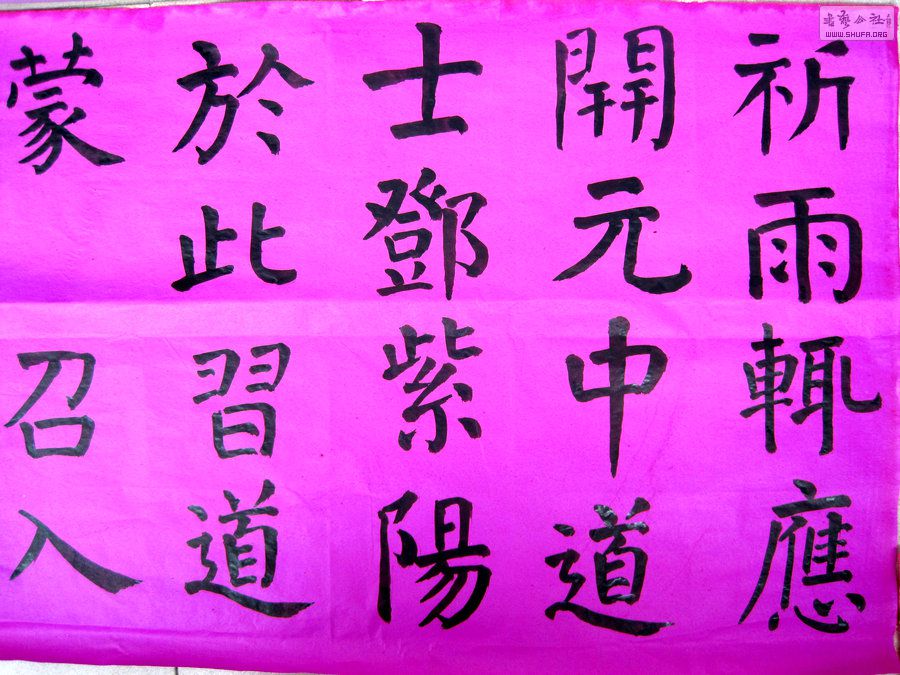 祈雨輒應
開元中道
士鄧紫陽
於此習道
蒙召入
書藝公社
WWW.SHUFA.ORG